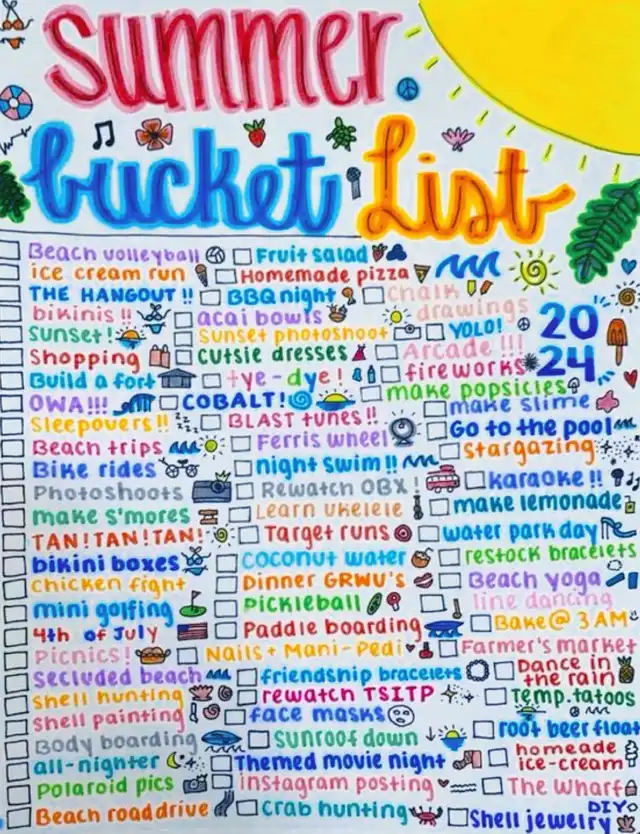 summer
bucket List
Beach volleyball Fruit salad
ice cream run Homemade pizza
THE HANGOUT !! BBQ night Chalk drawings
bikinis !! acai bowls
Sunset! Sunset photoshoot YOLO! 20
Shopping cutsie dresses Arcade !!! 24
Build a fort tye-dye! fireworks
OWA!!! COBALT! make popsicles
Sleepovers !! BLAST tunes!! make slime
Beach trips Ferris wheel Go to the pool
Bike rides night swim!! Stargazing
Photoshoots Rewatch OBX! karaoke !!
make s'mores Learn ukelele make lemonade
TAN!TAN!TAN! Target runs water park day
bikini boxes coconut water restock bracelets
Chicken fight Dinner GRWU's Beach yoga
mini golfing Pickleball line dancing
4th of July Paddle boarding Bake@ 3 AM
Picnics! Nails + Mani-Pedi Farmer's market
Secluded beach friendship bracelets Dance in the rain
Shell hunting rewatch TSITP Temp. tatoos
Shell painting face masks root beer float
Body boarding sunroof down homeade ice-cream
all-nighter Themed movie night
Polaroid pics instagram posting The Wharf
Beach roaddrive Crab hunting DIY Shell jewelry